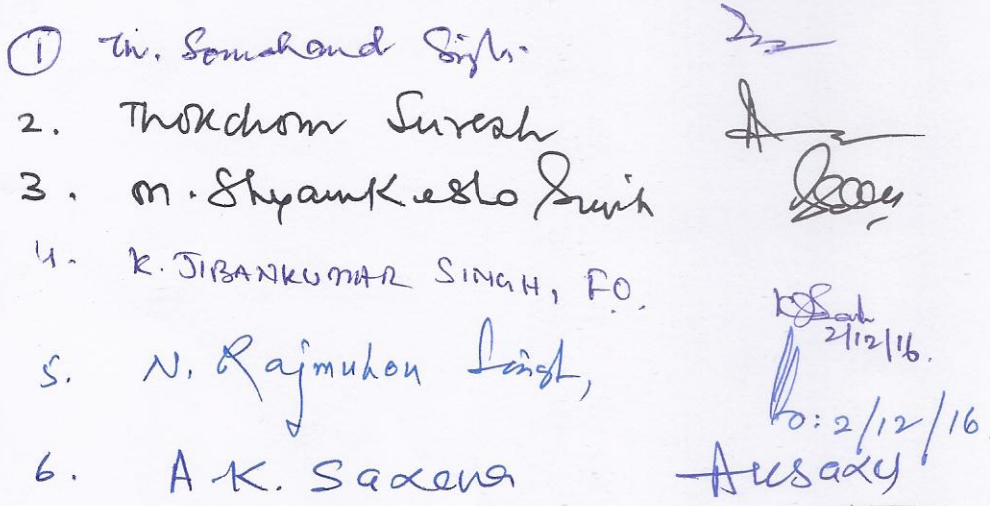 1 Th. Somchand Singh.
2. Thokchom Suresh
3. M. Shyamkesho Singh
4. K. JIBANKUMAR SINGH, FO.
2/12/16.
5. N. Rajmuhon Singh,
2/12/16
6. A K. Saxena AKSaxena